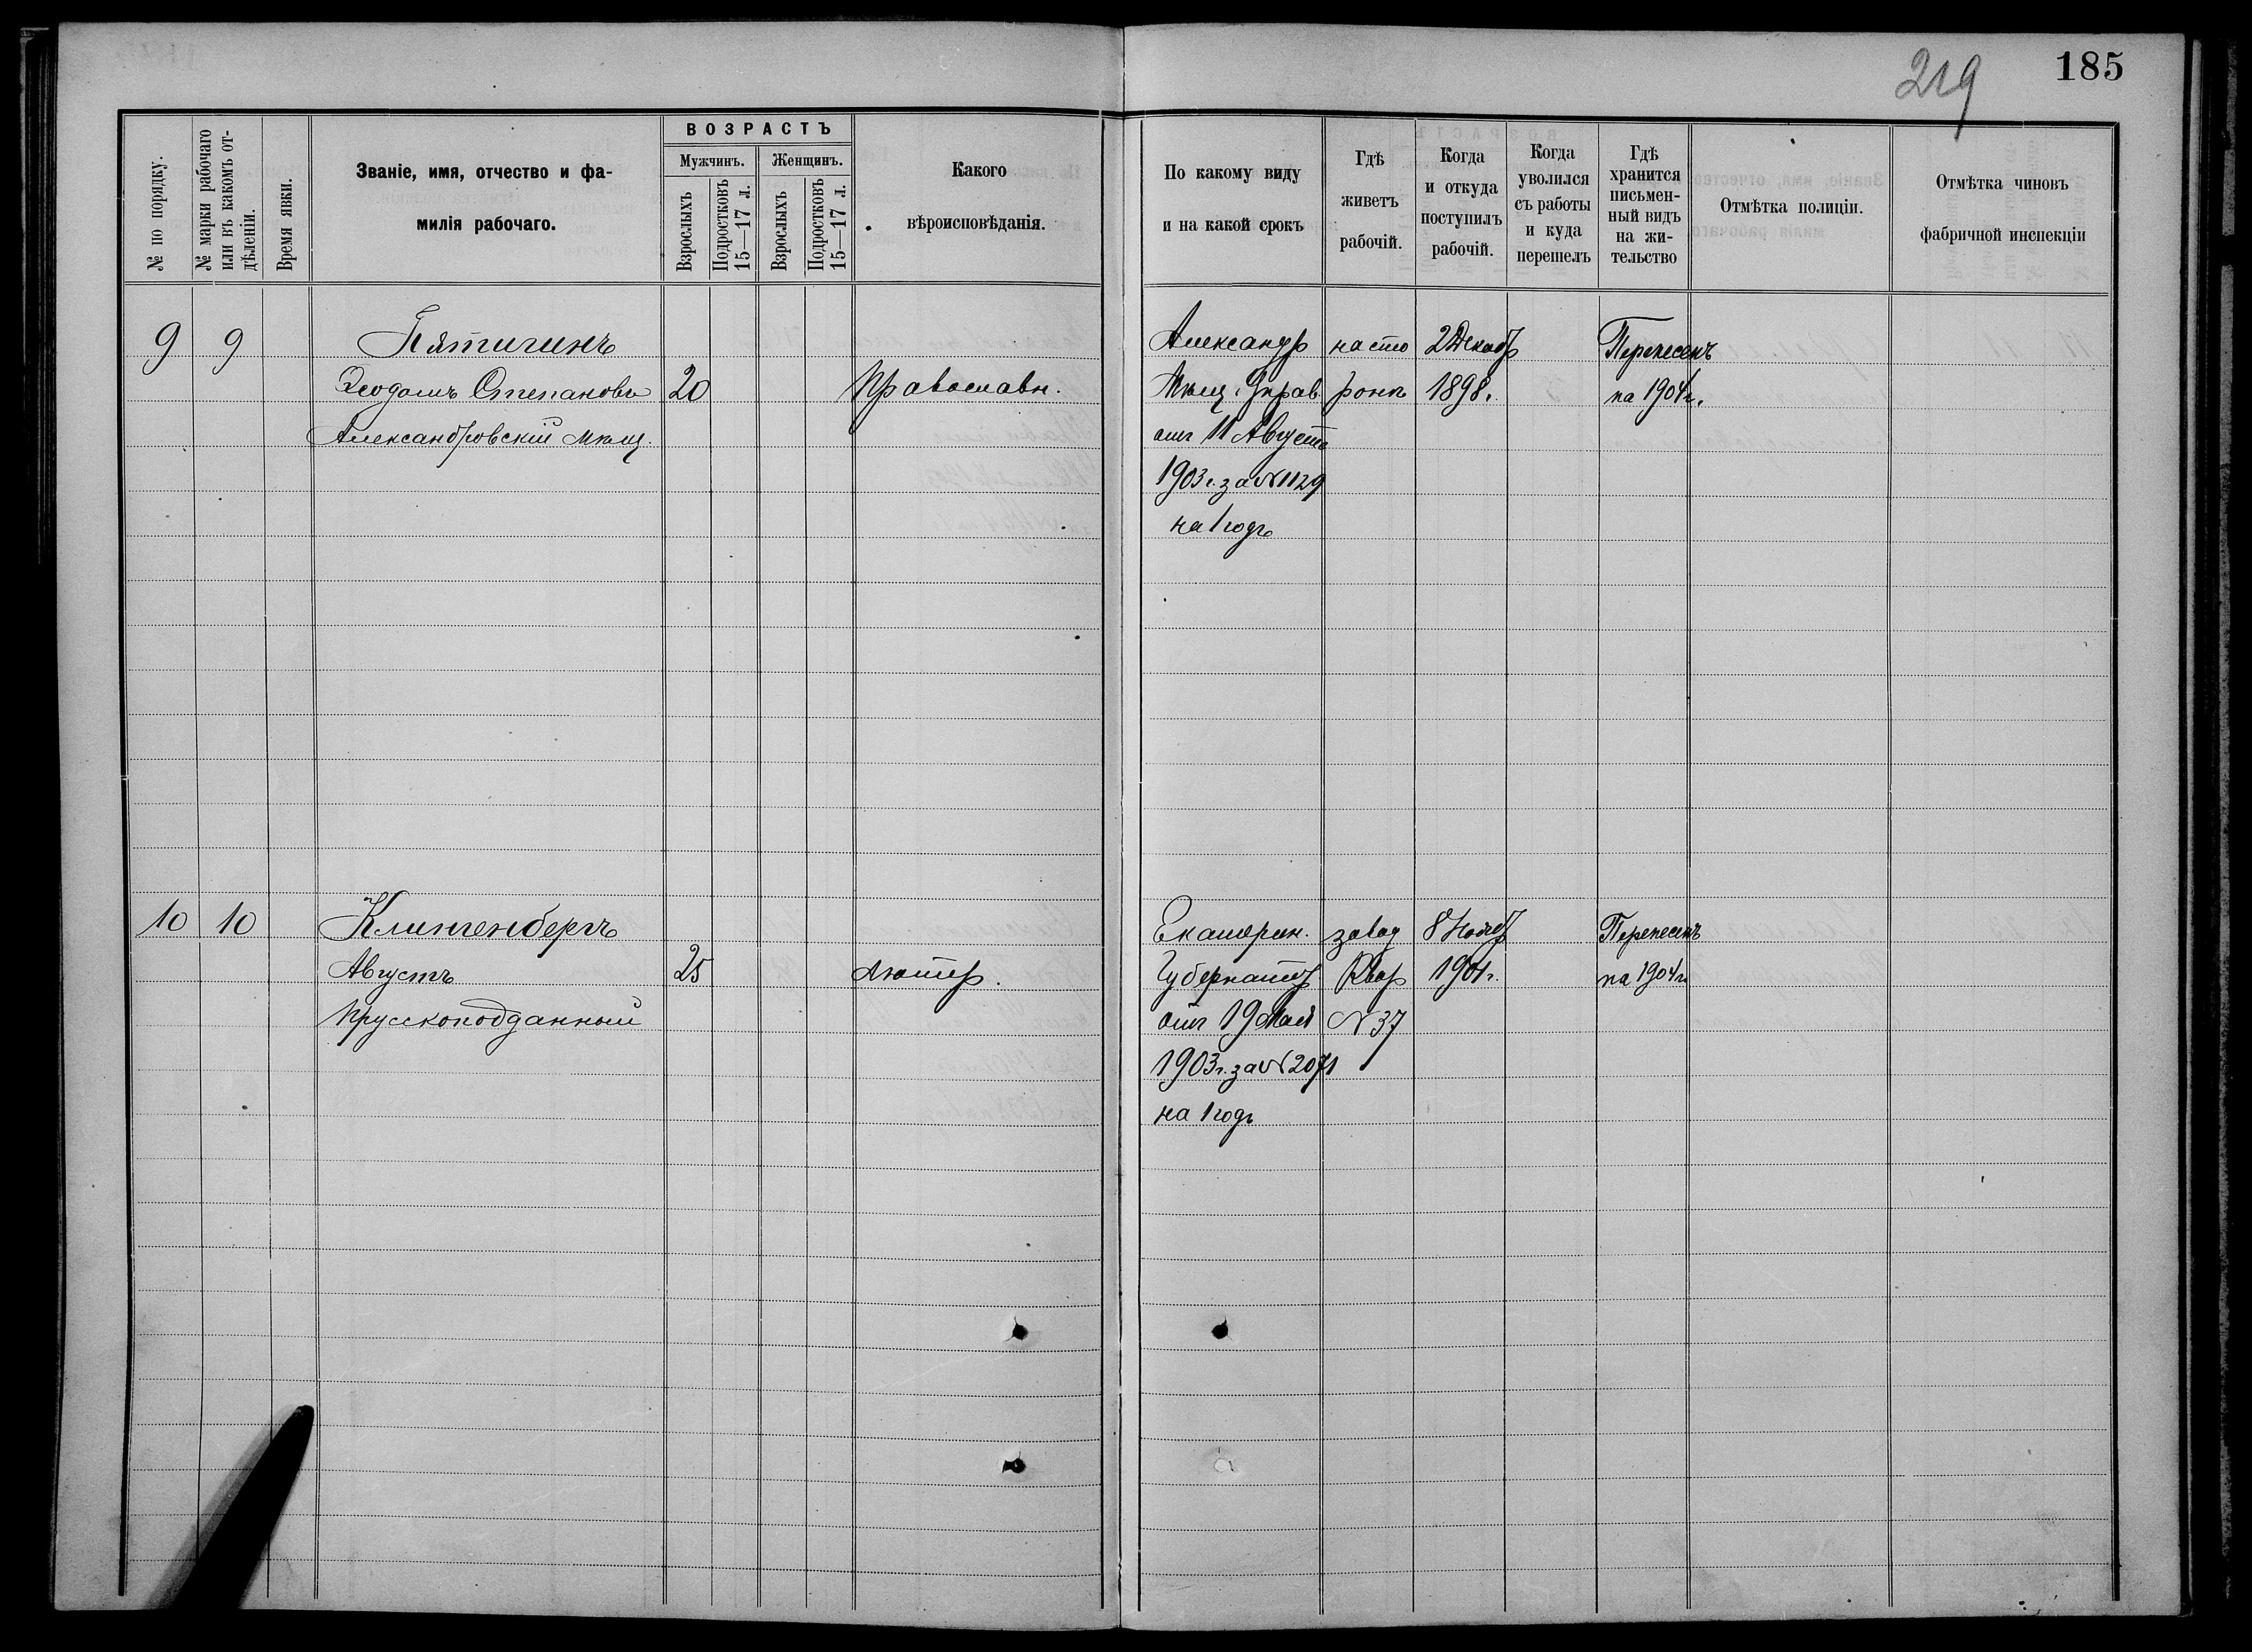 219
185
№ по порядку.
№ марки рабочаго или въ какомъ отдѣленіи.
Время явки.
Званіе, имя, отчество и фа-
милія рабочаго.
ВОЗРАСТЪ
Мужчинъ.
Женщинъ.
Взрослыхъ
Подростковъ 15—17 л.
Взрослыхъ
Подростковъ 15—17 л.
Какого
вѣроисповѣданія.
По какому виду
и на какой срокъ
Гдѣ
живетъ
рабочій.
Когда
и откуда
поступилъ
рабочій.
Когда
уволился
съ работы
и куда
перешелъ
Гдѣ
хранится
письмен-
ный видъ
на жи-
тельство
Отмѣтка полиціи.
Отмѣтка чиновъ
фабричной инспекціи
9 9 Пятигинъ Александр на сто 2 Декабр Перенесенъ
Степановъ 20 Православн. Мѣщ. Управ ронѣ 1898. на 1904 г.
Александровскій Мѣщ. отъ 11 Августа
1903 г. за № 1129
на 1 годъ
10 10 Клингенбергъ Екатерин. завод 8 Нояб Перенесенъ
Августъ 25 Лютер. Губернатор Квар 1901 г. на 1904 г.
Прусскоподданный отъ 19 Мая № 37
1903 г. за № 2071
на 1 годъ